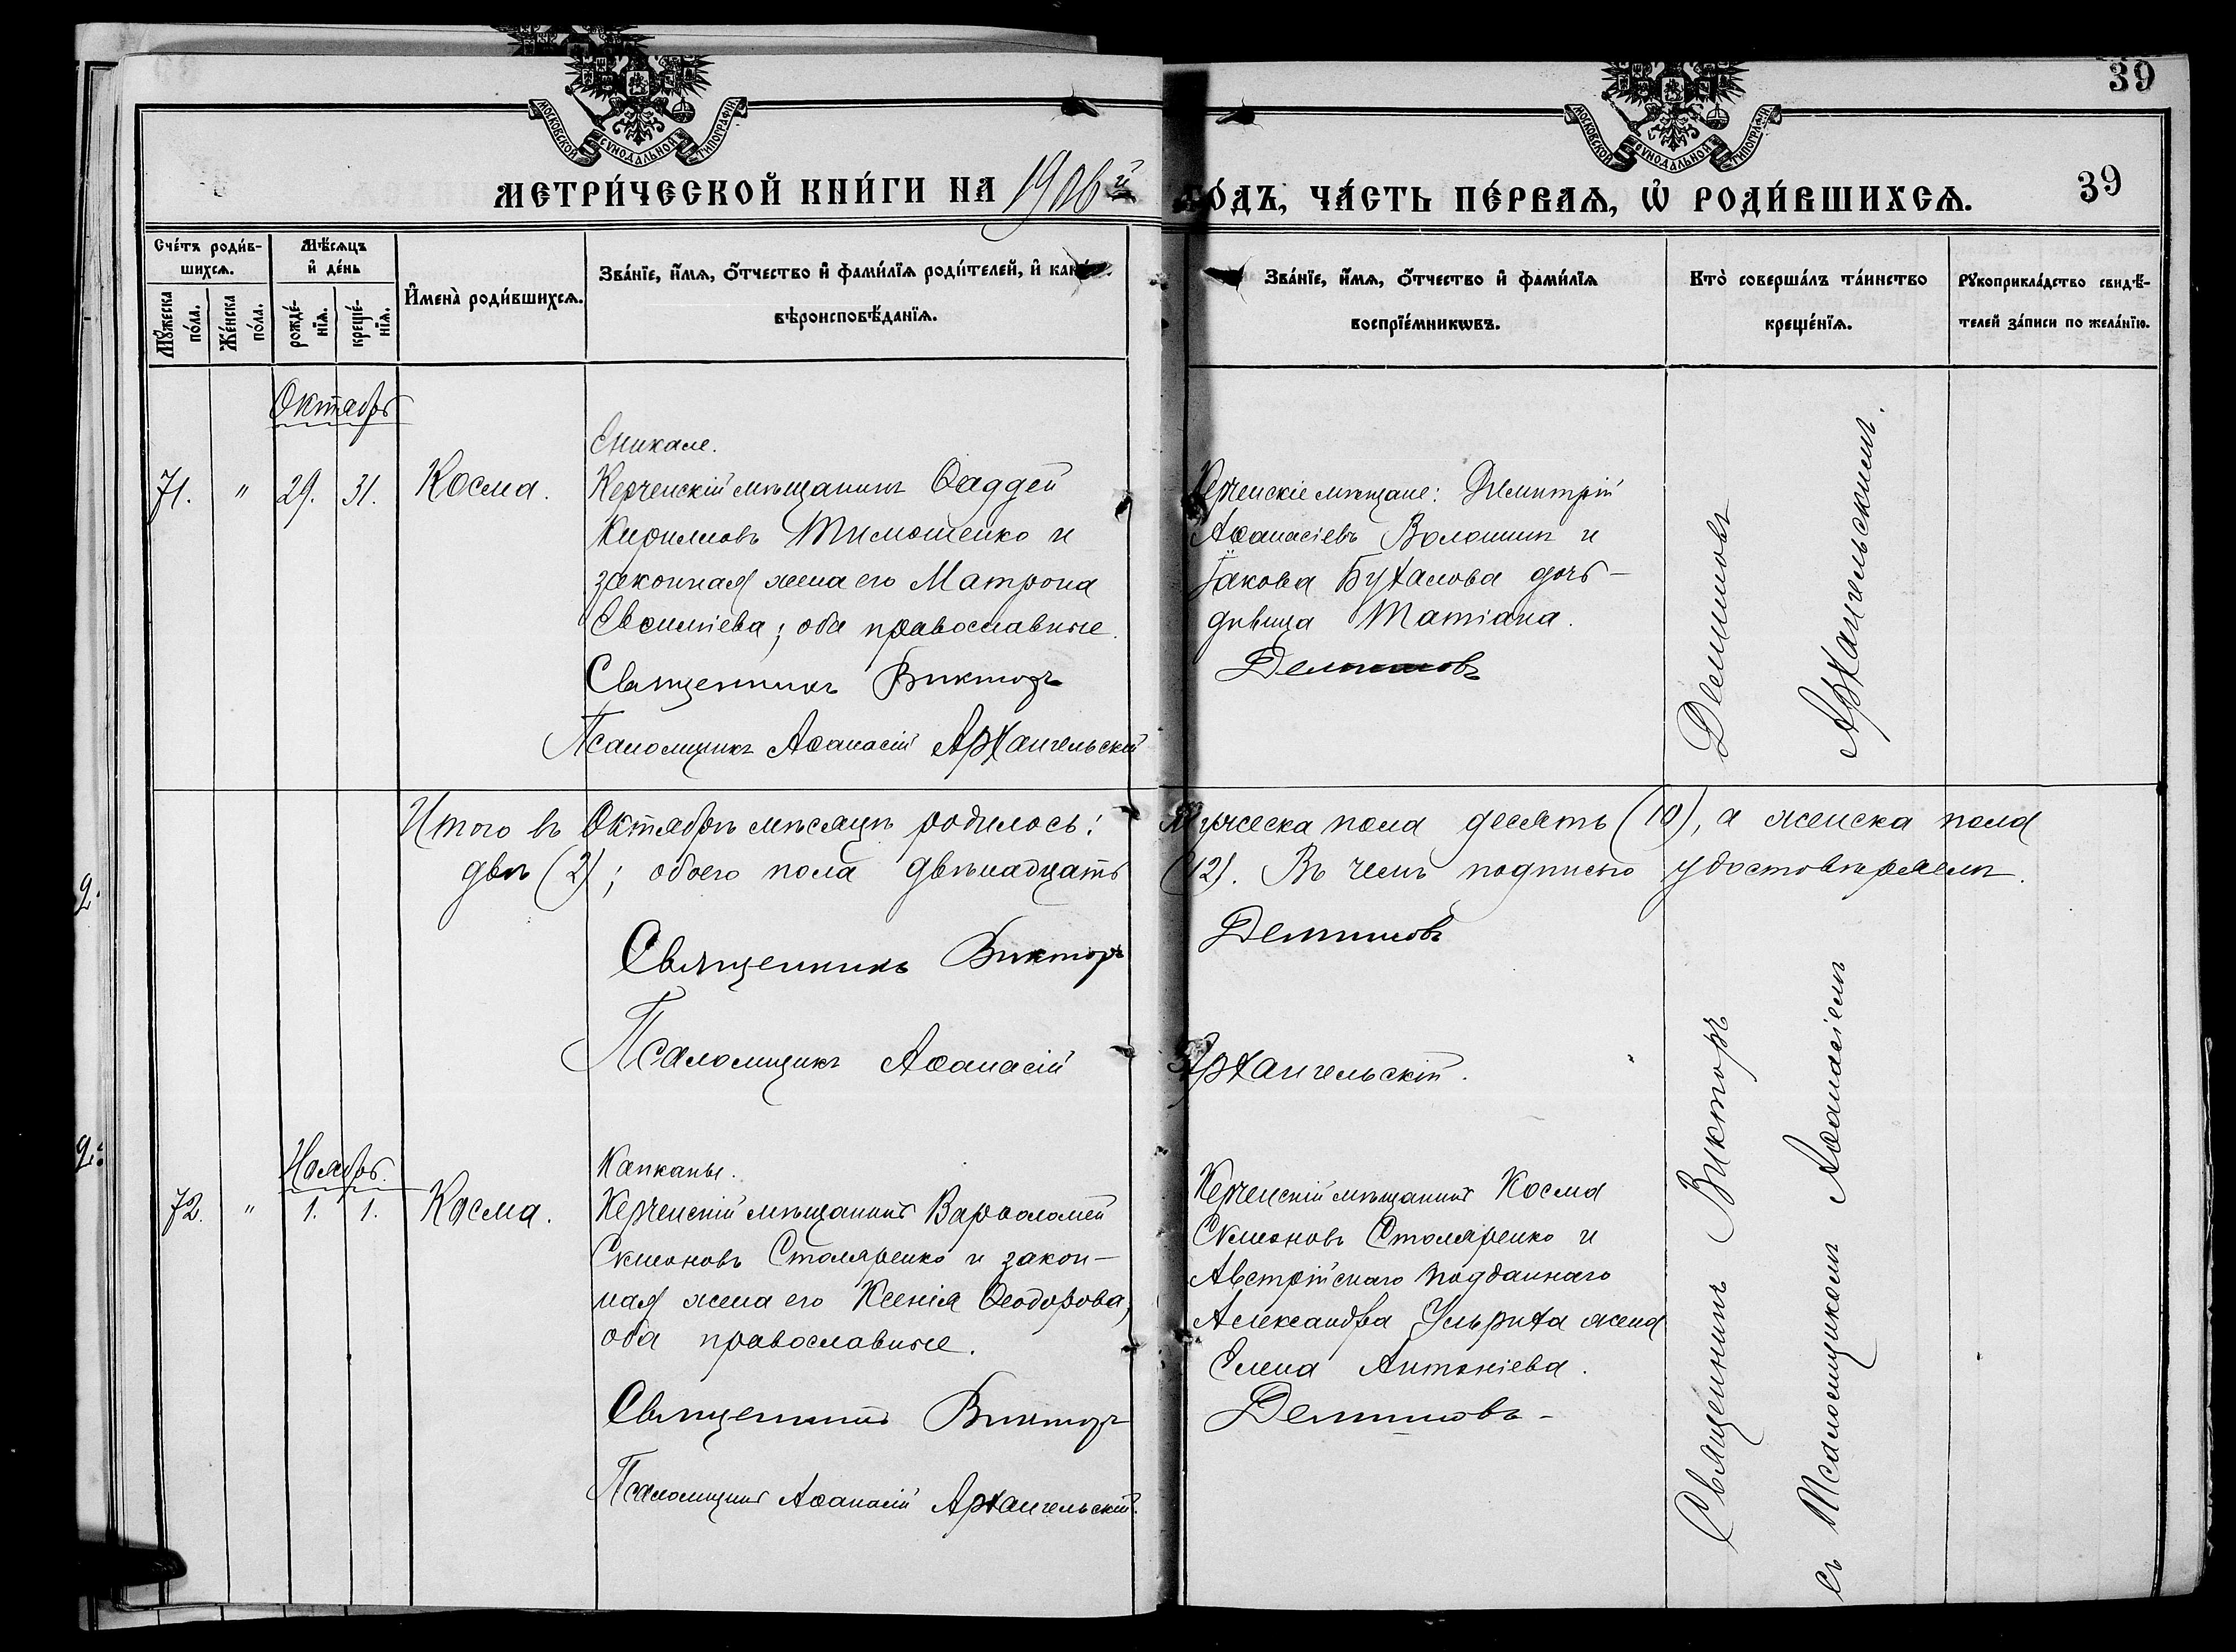 39
МОСКОВСКОЙ СѴНОДАЛЬНОЙ ТИПОГРАФІИ
МОСКОВСКОЙ СѴНОДАЛЬНОЙ ТИПОГРАФІИ
МЕТРИ́ЧЕСКОЙ КНИ́ГИ НА 1906й ГО́ДЪ, ЧА́СТЬ ПЕ́РВАѦ, Ѡ҆ РОДИ́ВШИХСѦ.
39
Сче́тъ роди́в-
шихсѧ.
Мꙋ́жеска по́ла.
Же́нска по́ла.
Мѣ́сѧцъ
и҆ де́нь
рожде́-
нїѧ.
креще́-
нїѧ.
И҆мена̀ роди́вшихсѧ.
Зва́нїе, и҆́мѧ, ѻ҆́тчество и҆ фами́лїѧ роди́телей, и҆
вѣроисповѣ́данїѧ.
Зва́нїе, и҆́мѧ, ѻ҆́тчество и҆ фами́лїѧ
воспрїе́мникѡвъ.
Кто̀ соверша́лъ та́инство
креще́нїѧ.
Рꙋкоприкла́дство свидѣ́-
телей за́писи по жела́нїю.
Октябрь
71. " 29. 31. Косма.
Еникале.
Керченскій мѣщанинъ Ѳаддей
Кирилловъ Тимошенко и
законная жена его Матрона
Евѳиміева; оба православные.
Священникъ Викторъ
Псаломщикъ Аѳанасій Архангельскій
Керченскіе мѣщане: Димитрій
Аѳанасіевъ Волошинъ и
Іакова Бухалова дочь –
дѣвица Татіана.
Демишовъ
Демишовъ
Архангельскимъ.
Итого въ Октябрѣ мѣсяцѣ родилось: мужеска пола десять (10), а женска пола
двѣ (2); обоего пола двѣнадцать (12). Въ чемъ подписью удостовѣряемъ.
Священникъ Викторъ Демишовъ
Псаломщикъ Аѳанасій Архангельскій.
Ноябрь.
72. " 1. 1. Косма.
Капканы.
Керченскій мѣщанинъ Варѳоломей
Симоновъ Столяренко и закон-
ная жена его Ксенія Ѳеодорова,
оба православные.
Священникъ Викторъ
Псаломщикъ Аѳанасій Архангельскій.
Керченскій мѣщанинъ Косма
Симоновъ Столяренко и
Австрійскаго подданнаго
Александра Ульриха жена
Елена Антоніева.
Демишовъ
Священникъ Викторъ
съ Псаломщикомъ Аѳанасіемъ